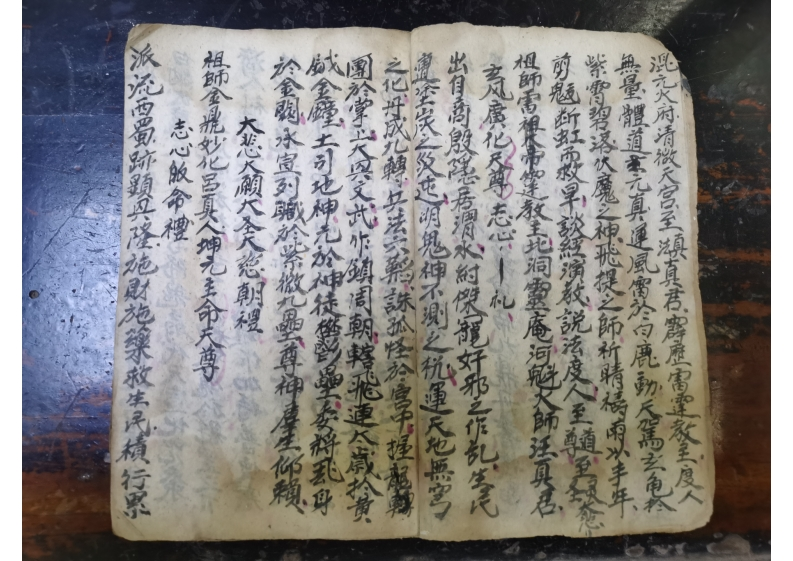 混元六府清微天宮至顛真君霹靂雷霆教主度人
無量體道玄元真運風雷於白鹿動天駕玄龜於
紫霄碧落伏魔之神飛提之師祈晴禱雨以丰年
剪魃斬虹而救旱談經演教說法度人至道至玄
祖師雷霆教主北洞靈庵河魁大師汪真君
玄风廣化天尊 志心丨礼
出自商殷隱居渭水紂傑寵奸邪之作乱生民
塗炭之災迍明鬼神不測之机運天地無窮
之化丹成九轉兵法六韜誅孤怪於宮中掃龍
團於掌山大興文武作鎮周朝轄飛連太歲於黄
鉞金鐘土司地神元於神徒欎壘委將飛身
於金闕永宣列職於紫微九壘尊神羣生仰賴
大悲大願大圣大慈朝禮
祖師金鼎妙化呂真人坤元主命天尊
志心皈命禮
派流西蜀跡顯興隆施財施藥救生民積行累